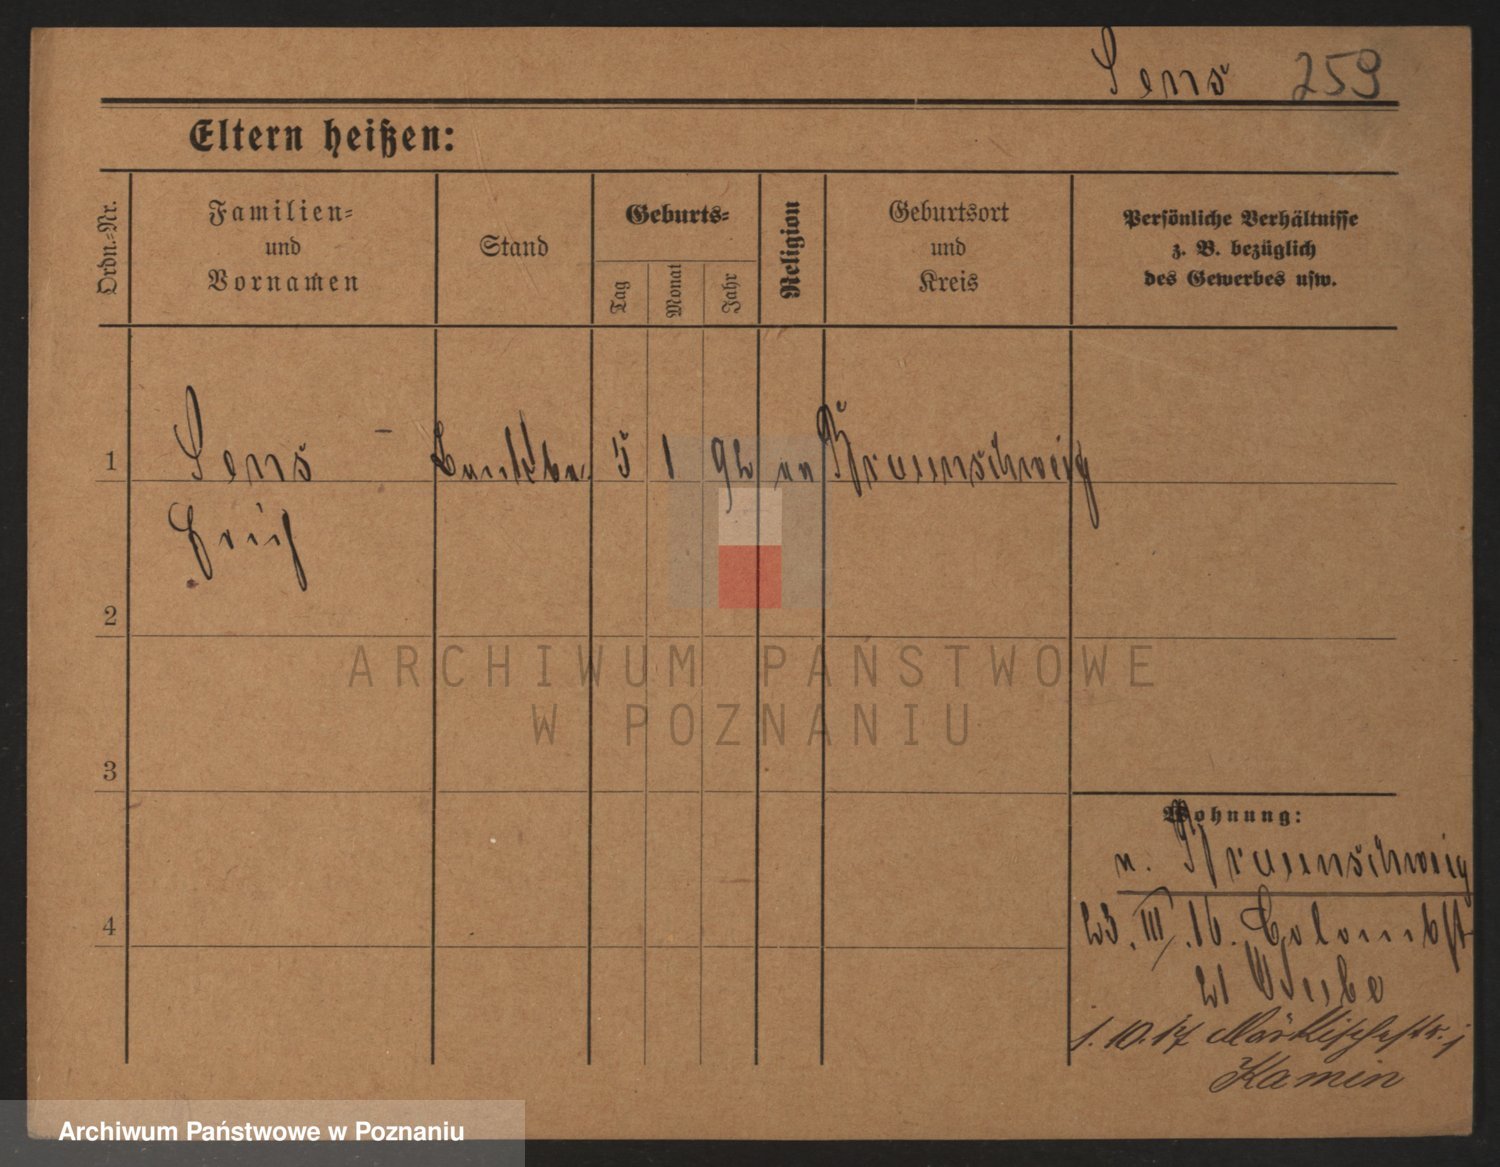 Sens 259
Eltern heißen:
Ordn.-Nr.
Familien-
und
Vornamen
Stand
Geburts-
Tag
Monat
Jahr
Religion
Geburtsort
und
Kreis
Persönliche Verhältnisse
z. B. bezüglich
des Gewerbes usw.
1 Sens - 5 1 92 Braunschweig
Erich
2
3
4
Wohnung:
n. Braunschweig
23. III. 16. Colombstr
21
1. 10. 17 Märkischestr. 1
Kamin
ARCHIWUM PAŃSTWOWE
W POZNANIU
Archiwum Państwowe w Poznaniu